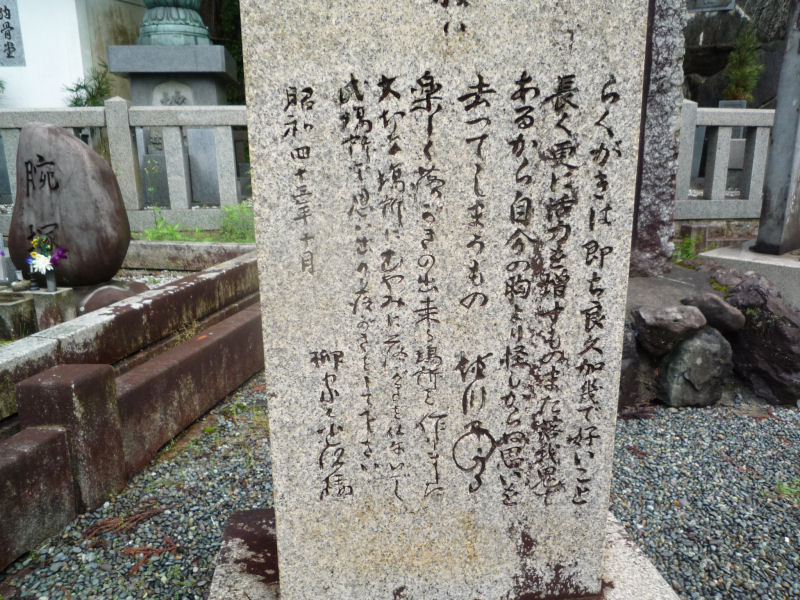 らくがきは即ち良久加幾で好いこと
長く更に活力を増すもの また苦我鬼で
あるから自分の胸より怪しからぬ思いを
去ってしまうもの
楽しく落がきの出来る場所を作りました
大切な場所にむやみに落がきを仕ないで
此場所で思い出の落がきをして下さい
昭和四十三年十月
腕塚
納骨堂